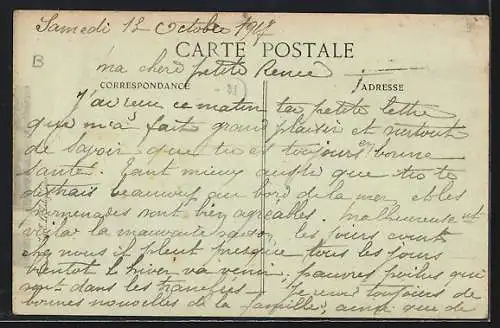 Samedi 13 Octobre 1917
B
CARTE POSTALE
ma chère petite Renée
CORRESPONDANCE
ADRESSE
J'ai reçu ce matin ta petite lettre
que m'a fait grand plaisir et surtout
de savoir que tu es toujours en bonne
santé. Tant mieux aussi que tu te
beaucoup au bord de la mer, et les
promenades sont bien agréables. Malheureuse nt
voila la mauvaise saison, les jours courts
chez nous il pleut presque tous les jours
bientot le hiver va venir, pauvres poilus qui
sont dans les tranchées Je reçu toujours de
bonnes nouvelles de la famille, ainsi que de